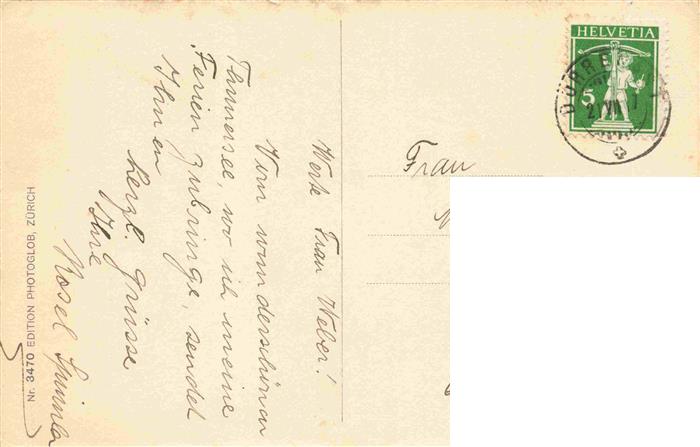 Werte Frau Weber!
Vom wunderschönen
Thunersee, wo ich meine
Ferien zubringe, sendet
Ihnen
herzl. Grüsse
Ihre
Rosel
Nr. 3470 EDITION PHOTOGLOB, ZÜRICH
HELVETIA
5
Frau